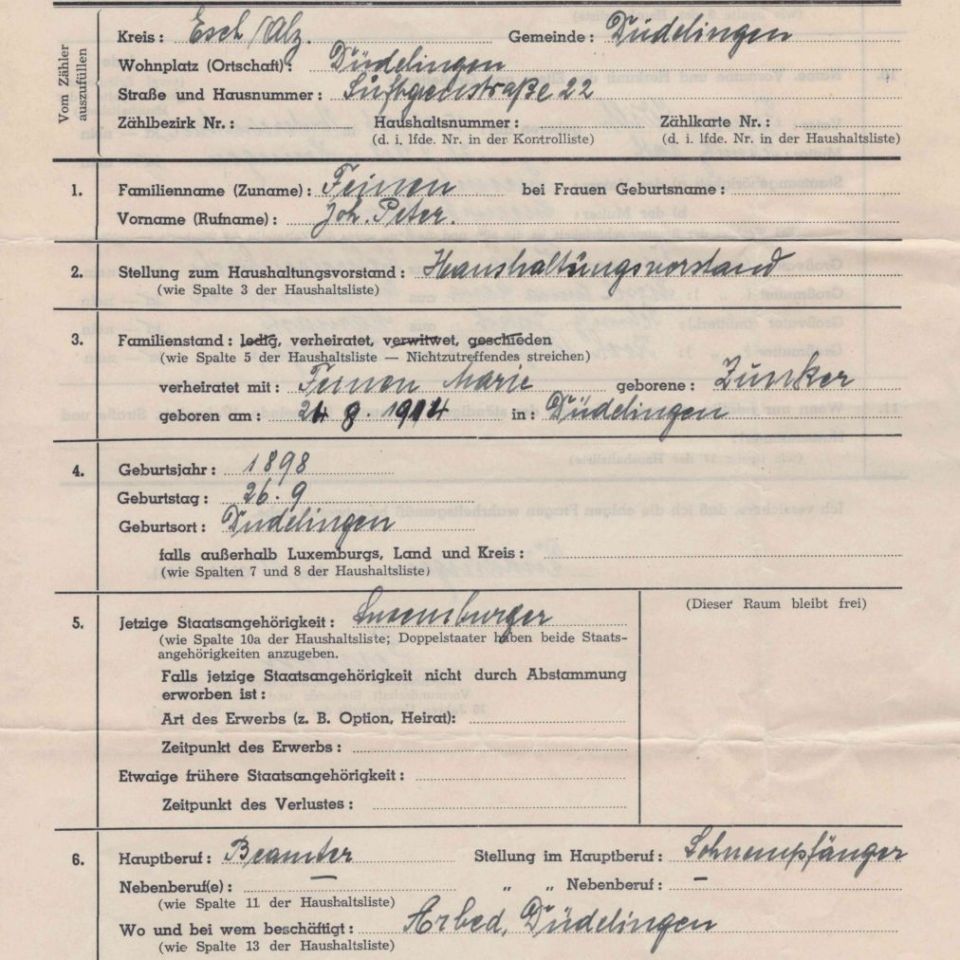 Vom Zähler
auszufüllen
Kreis: Esch/Alz. Gemeinde: Düdelingen
Wohnplatz (Ortschaft): Düdelingen
Straße und Hausnummer: 22
Zählbezirk Nr.: Haushaltsnummer: Zählkarte Nr.:
(d. i. lfde. Nr. in der Kontrolliste) (d. i. lfde. Nr. in der Haushaltsliste)
1. Familienname (Zuname): Feinen bei Frauen Geburtsname:
Vorname (Rufname): Joh. Peter.
2. Stellung zum Haushaltungsvorstand: Haushaltungsvorstand
(wie Spalte 3 der Haushaltsliste)
3. Familienstand: ledig, verheiratet, verwitwet, geschieden
(wie Spalte 5 der Haushaltsliste — Nichtzutreffendes streichen)
verheiratet mit: Feinen Marie geborene: Zünker
geboren am: 8. in: Düdelingen
4. Geburtsjahr: 1898
Geburtstag: 26.9
Geburtsort: Düdelingen
falls außerhalb Luxemburgs, Land und Kreis:
(wie Spalten 7 und 8 der Haushaltsliste)
5. Jetzige Staatsangehörigkeit: Luxemburger
(wie Spalte 10a der Haushaltsliste; Doppelstaater haben beide Staats-
angehörigkeiten anzugeben.
(Dieser Raum bleibt frei)
Falls jetzige Staatsangehörigkeit nicht durch Abstammung
erworben ist:
Art des Erwerbs (z. B. Option, Heirat):
Zeitpunkt des Erwerbs:
Etwaige frühere Staatsangehörigkeit:
Zeitpunkt des Verlustes:
6. Hauptberuf: Beamter Stellung im Hauptberuf: Lohnempfänger
Nebenberuf(e): — „ „ Nebenberuf: —
(wie Spalte 11 der Haushaltsliste)
Wo und bei wem beschäftigt: Arbed, Düdelingen
(wie Spalte 13 der Haushaltsliste)